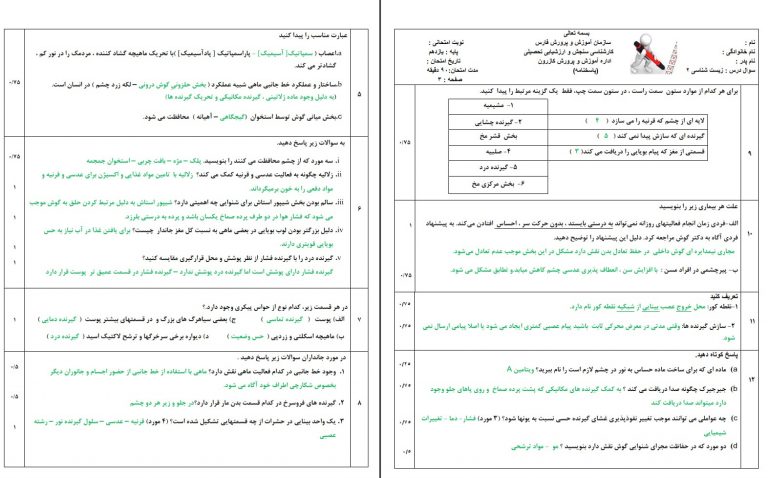 بسمه تعالی
نام :
نام خانوادگی :
نام پدر :
سوال درس : زیست شناسی ۲
سازمان آموزش و پرورش فارس
کارشناسی سنجش و ارزشیابی تحصیلی
اداره آموزش و پرورش کازرون
(پاسخنامه)
نوبت امتحانی :
پایه : یازدهم
تاریخ امتحان :
مدت امتحان: ۹۰ دقیقه
صفحه : ۳
۹
برای هر کدام از موارد ستون سمت راست ، در ستون سمت چپ، فقط یک گزینه مرتبط را پیدا کنید.
لایه ای از چشم که قرنیه را می سازد ( ۴ )
گیرنده ای که سازش پیدا نمی کند ( ۵ )
قسمتی از مغز که پیام بویایی را دریافت می کند( ۳ )
۱- مشیمیه
۲- گیرنده چشایی
بخش قشر مخ
۴- صلبیه
۵- گیرنده درد
۶- بخش مرکزی مخ
۰/۷۵
۱۰
علت هر بیماری زیر را بنویسید
الف-فردی زمان انجام فعالیتهای روزانه نمی‌تواند به درستی بایستد ، بدون حرکت سر ، احساس افتادن می‌کند. به پیشنهاد
فردی آگاه به دکتر گوش مراجعه کرد. دلیل این پیشنهاد را توضیح دهید.
مجاری نیمدایره ای گوش داخلی در حفظ تعادل بدن نقش دارد مشکل در این بخش موجب عدم تعادل می‌شود
ب- پیرچشمی در افراد مسن : با افزایش سن ، انعطاف پذیری عدسی چشم کاهش میابد و تطابق مشکل می شود.
۱
۰/۷۵
۱۱
تعریف کنید
۱-نقطه کور: محل خروج عصب بینایی از شبکیه نقطه کور نام دارد.
۲- سازش گیرنده ها: وقتی مدتی در معرض محرکی ثابت باشید پیام عصبی کمتری ایجاد می شود یا اصلا پیامی ارسال نمی
شود.
۰/۷۵
۰/۷۵
۱۲
پاسخ کوتاه دهید.
a) ماده ای که برای ساخت ماده حساس به نور در چشم لازم است را نام ببرید؟ ویتامین A
b) جیرجیرک چگونه صدا دریافت می کند ؟ به کمک گیرنده های مکانیکی که پشت پرده صماخ و روی پاهای جلو وجود
دارد میتواند صدا دریافت کند.
c) چه عواملی می توانند موجب تغییر نفوذپذیری غشای گیرنده حسی نسبت به یونها شود؟ (۳ مورد) فشار- دما - تغییرات
شیمیایی
d) دو مورد که در حفاظت مجرای شنوایی گوش نقش دارد بنویسید ؟ مو - مواد ترشحی
۰/۲۵
۰/۷۵
۰/۵
۵
عبارت مناسب را پیدا کنید
a.اعصاب ( سمپاتیک[ آسیمیک - پاراسمپاتیک [ پادآسیمیک ] )با تحریک ماهیچه گشاد کننده ، مردمک را در نور کم ،
گشادتر می کند.
b.ساختار و عملکرد خط جانبی ماهی شبیه عملکرد ( بخش حلزونی گوش درونی – لکه زرد چشم ) در انسان است.
(به دلیل وجود ماده ژلاتینی ، گیرنده مکانیکی و تحریک گیرنده ها)
c.بخش میانی گوش توسط استخوان (گیجگاهی - آهیانه ) محافظت می شود.
۰/۷۵
۶
به سوالات زیر پاسخ دهید.
i. سه مورد که از چشم محافظت می کنند را بنویسید. پلک - مژه - بافت چربی - استخوان جمجمه
ii. زلالیه چگونه به فعالیت عدسی و قرنیه کمک می کند؟ زلالیه با تامین مواد غذایی و اکسیژن برای عدسی و قرنیه و
مواد دفعی را به خون برمیگرداند.
iii. سالم بودن بخش شیپور استاش برای شنوایی چه اهمیتی دارد؟ شیپور استاش به دلیل مرتبط کردن حلق به گوش موجب
می شود که فشار هوا در دو طرف پرده صماخ یکسان باشد و پرده به درستی بلرزد.
iv. دلیل بزرگتر بودن لوب بویایی در بعضی ماهی به نسبت کل مغز جاندار چیست؟ برای یافتن غذا در آب نیاز به حس
بویایی قویتری دارند.
v. گیرنده درد را با گیرنده فشار از نظر پوشش و محل قرارگیری مقایسه کنید؟
گیرنده فشار دارای پوشش است اما گیرنده درد پوشش ندارد - گیرنده فشار در قسمت عمیق تر پوست قرار دارد
۰/۷۵
۱
۱
۱
۱
۷
در هر قسمت زیر، کدام نوع از حواس پیکری وجود دارد.؟
الف) پوست ( گیرنده تماسی ) ج) بعضی سیاهرگ های بزرگ و و در قسمتهای بیشتر پوست ( گیرنده دمایی )
ب) ماهیچه اسکلتی و زردپی ( حس وضعیت ) د) دیواره برخی سرخرگها و ترشح لاکتیک اسید ( گیرنده درد )
۱
۸
در مورد جانداران سوالات زیر پاسخ دهید .
۱. وجود خط جانبی در کدام فعالیت ماهی نقش دارد؟ ماهی با استفاده از خط جانبی از حضور اجسام و جانوران دیگر
بخصوص شکارچی اطراف خود آگاه می شود.
۲. گیرنده های فروسرخ در کدام قسمت بدن مار قرار دارد؟در جلو و زیر هر دو چشم
۳. یک واحد بینایی در حشرات از چه قسمتهایی تشکیل شده است؟ (۴ مورد) قرنیه - عدسی - سلول گیرنده نور - رشته
عصبی
۰/۵
۰/۵
۱